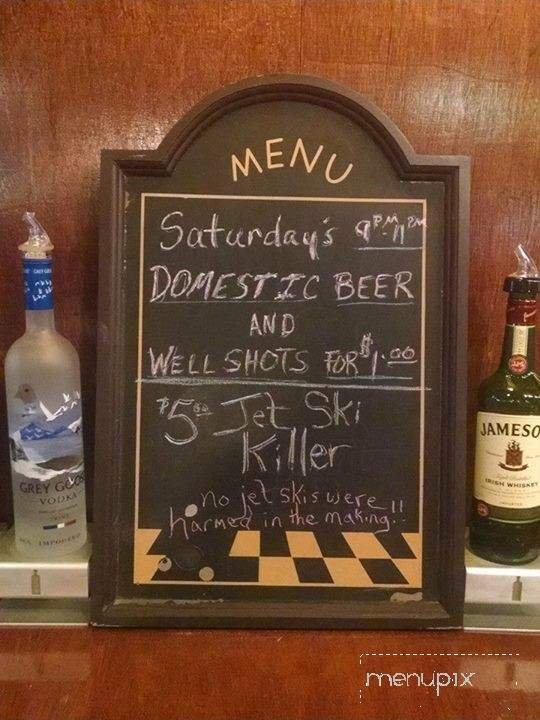 MENU
Saturday's 9PM 11PM
DOMESTIC BEER
AND
WELL SHOTS FOR $1.00
$5.00 Jet Ski
Killer
no jet skis were
harmed in the making!!
GREY GOOSE
VODKA
IMPORTED
JAMESO
IRISH WHISKEY
menupix